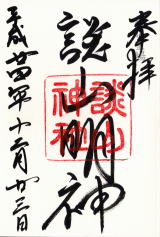 奉拝
談山明神
談山神社
平成廿四年十一月廿三日